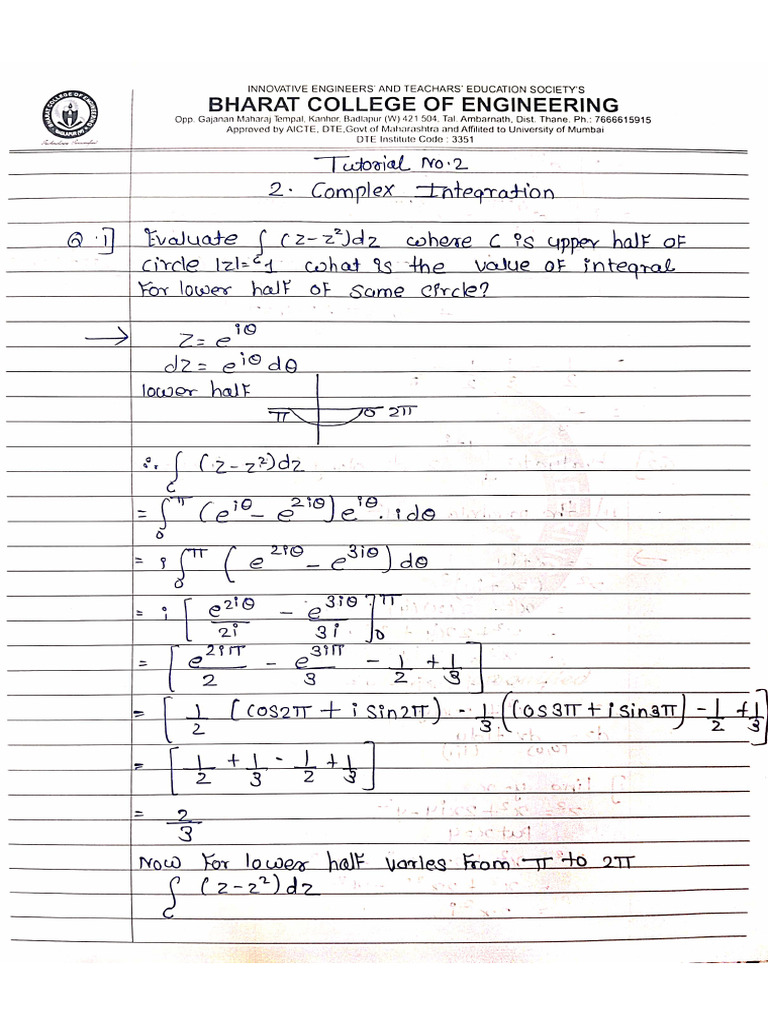 INNOVATIVE ENGINEERS' AND TEACHARS' EDUCATION SOCIETY'S
BHARAT COLLEGE OF ENGINEERING
Opp. Gajanan Maharaj Tempal, Kanhor, Badlapur (W) 421 504, Tal. Ambarnath, Dist. Thane. Ph.: 7666615915
Approved by AICTE, DTE,Govt of Maharashtra and Affilited to University of Mumbai
DTE Institute Code : 3351
Tutorial No.2
2. Complex Integration
Q.1] Evaluate ∫_C (z-z²)dz where C is upper half of
circle |z|=1 what is the value of integral
for lower half of same circle?
→ z = e^{iθ}
dz = e^{iθ} dθ
lower half
π 0 2π
∴ ∫_C (z-z²)dz
= ∫_0^π (e^{iθ} - e^{2iθ}) e^{iθ}. i dθ
= i ∫_0^π (e^{2iθ} - e^{3iθ}) dθ
= i [e^{2iθ}/2i - e^{3iθ}/3i]_0^π
= [e^{2iπ}/2 - e^{3iπ}/3 - 1/2 + 1/3]
= [1/2 (cos2π + i sin2π) - 1/3 (cos3π + i sin3π) - 1/2 + 1/3]
= [1/2 + 1/3 - 1/2 + 1/3]
= 2/3
Now for lower half varies from π to 2π
∫_C (z-z²)dz